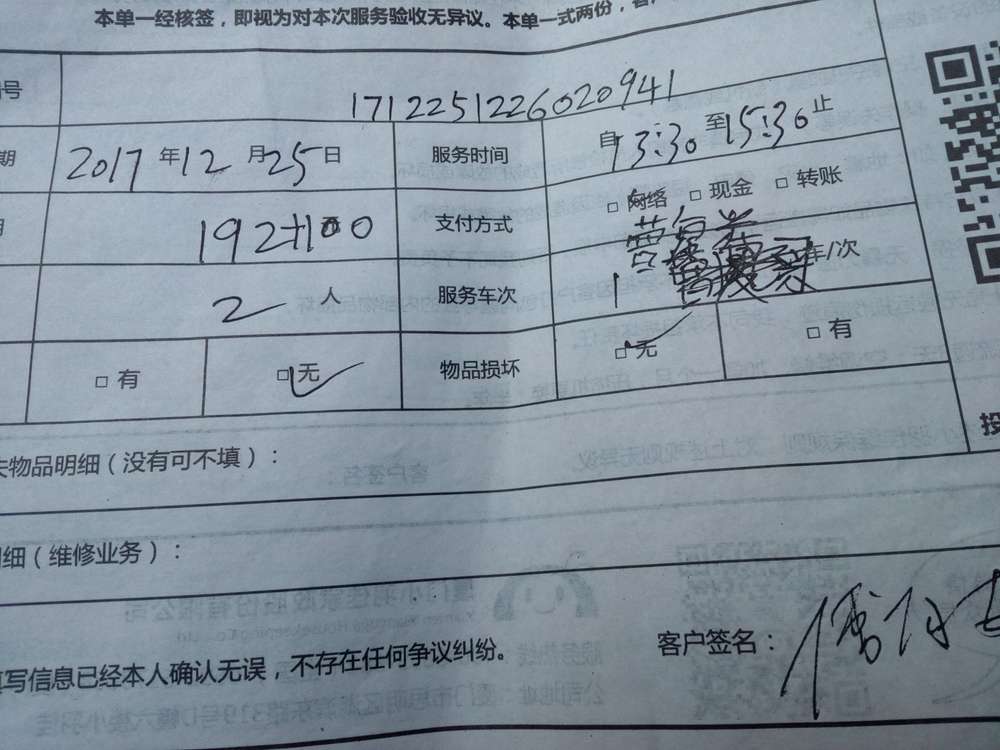 本单一经核签，即视为对本次服务验收无异议。本单一式两份，客
号 1712251226020941
期 2017年12月25日 服务时间 自13:30至15:30止
192+100 支付方式 □网络 □现金 □转账
2人 服务车次 1 车/次
□有 □无 物品损坏 □无 □有
投
失物品明细（没有可不填）：
明细（维修业务）：
客户签名：
填写信息已经本人确认无误，不存在任何争议纠纷。